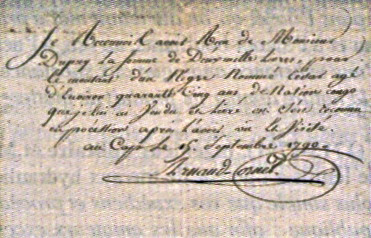 Je Reconnois avoir Reçu de Monsieur
Dupuy la somme de Deux mille Livres, pour
le montant d'un Negre Nommé Cesar agé
d'environ quarante Cinq ans, de Nation congo
que je lui ai Vendu et Livré
en possession après l'avoir vu & Visité
au Cap Le 15 Septembre 1790
Arnaud Cornet